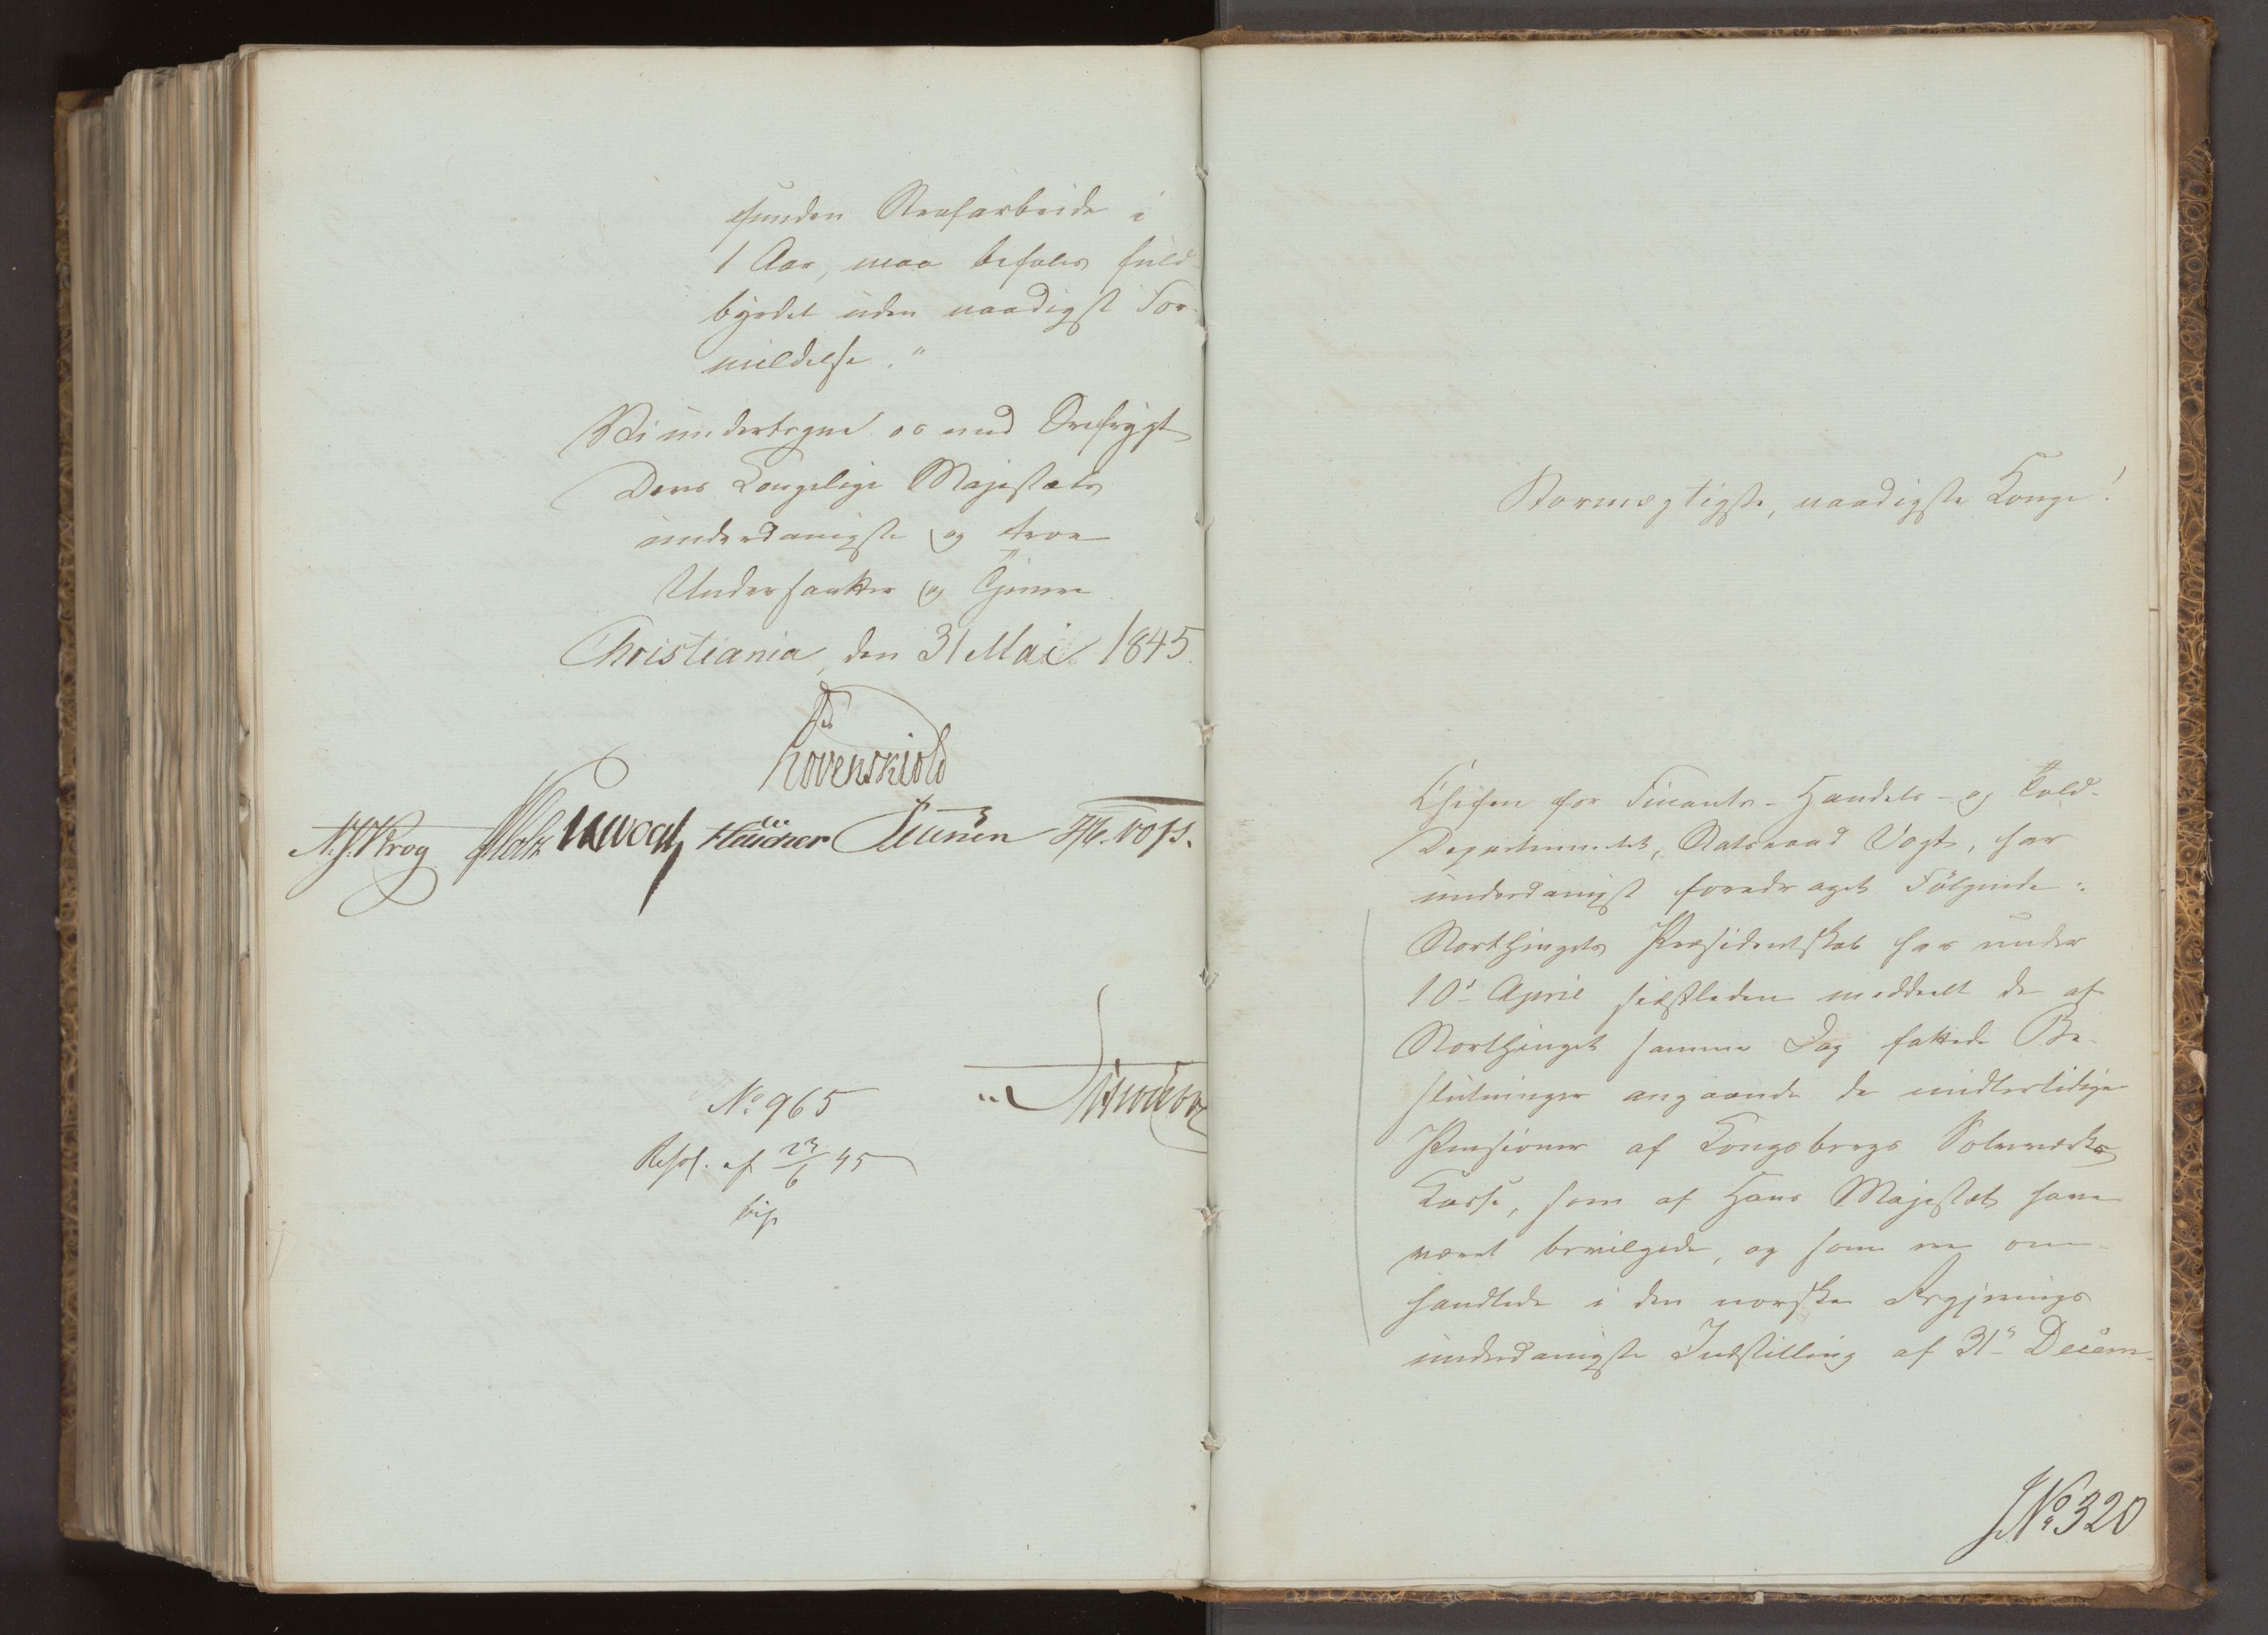 funden Strafarbeide i
1 Aar, maa befales fuld-
byrdet uden naadigst For-
mildelse."
Vi undertegne os med Ærefrygt
Deres Kongelige Majestæts
underdanigste og troe
Undersaatter og Tjenere
Christiania, den 31 Mai 1845.
Løvenskiold
N. J. Krog Motz Vogt
No 965
Resol. af 23/6 45
Stormægtigste, naadigste Konge!
Chefen for Finants- Handels- og Told-
Departementet, Statsraad Vogt, har
underdanigst foredraget Følgende:
Storthingets Præsidentskab har under
10de April sidstleden meddeelt de af
Storthinget samme Dag fattede Be-
slutninger angaaende de midlertidige
Pensioner af Kongsbergs Sølvværks
Kasse, som af Hans Majestæt have
været bevilgede, og som ere om-
handlede i den norske Regjerings
underdanigste Indstilling af 31te Decem-
No 320